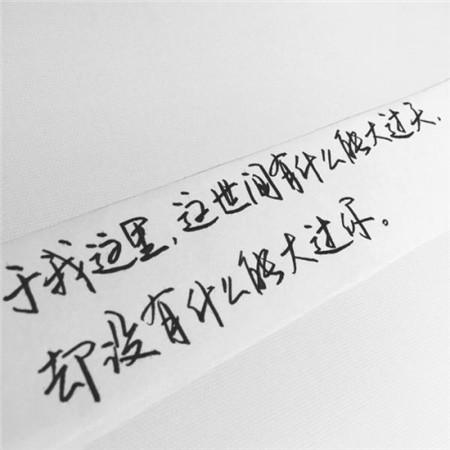 于我这里,这世间有什么能大过天,
却没有什么能大过你。